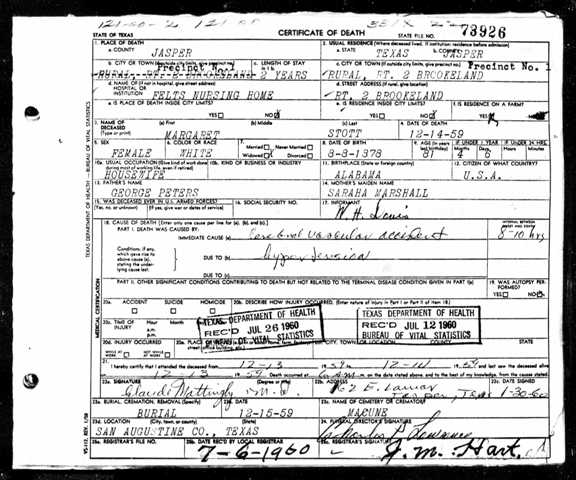 STATE OF TEXAS CERTIFICATE OF DEATH STATE FILE NO. 73926
1. PLACE OF DEATH
a. COUNTY JASPER
2. USUAL RESIDENCE (Where deceased lived. If institution: residence before admission)
a. STATE TEXAS b. COUNTY JASPER
b. CITY OR TOWN (If outside city limits, give precinct no.) Precinct No. 1
RURAL, RT. 2 BROOKELAND
c. LENGTH OF STAY 2 YEARS
c. CITY OR TOWN (If outside city limits, give precinct no.) Precinct No. 1
RURAL, RT. 2 BROOKELAND
d. NAME OF HOSPITAL OR INSTITUTION (If not in hospital, give street address)
FELTS NURSING HOME
d. STREET ADDRESS (If rural, give location)
RT. 2 BROOKELAND
e. IS PLACE OF DEATH INSIDE CITY LIMITS? YES NO
e. IS RESIDENCE INSIDE CITY LIMITS? YES NO
f. IS RESIDENCE ON A FARM? YES NO
3. NAME OF DECEASED (Type or print)
(a) First MARGARET
(b) Middle
(c) Last STOTT
4. DATE OF DEATH 12-14-59
5. SEX FEMALE
6. COLOR OR RACE WHITE
7. Married Never Married
Widowed Divorced
8. DATE OF BIRTH 8-8-1378
9. AGE 81
IF UNDER 1 YEAR 4 6
IF UNDER 24 HRS.
10a. USUAL OCCUPATION HOUSEWIFE
10b. KIND OF BUSINESS OR INDUSTRY
11. BIRTHPLACE (State or foreign country) ALABAMA
12. CITIZEN OF WHAT COUNTRY? U.S.A.
13. FATHER'S NAME GEORGE PETERS
14. MOTHER'S MAIDEN NAME SARAHA MARSHALL
15. WAS DECEASED EVER IN U.S. ARMED FORCES?
16. SOCIAL SECURITY NO.
17. INFORMANT W. H. Lewis
18. CAUSE OF DEATH (Enter only one cause per line for (a), (b), and (c).)
PART I. DEATH WAS CAUSED BY:
IMMEDIATE CAUSE (a) Cerebral vascular accident 8-10 hrs
DUE TO (b) hypertension
DUE TO (c)
PART II. OTHER SIGNIFICANT CONDITIONS CONTRIBUTING TO DEATH BUT NOT RELATED TO THE TERMINAL DISEASE CONDITION GIVEN IN PART I(a)
19. WAS AUTOPSY PERFORMED? YES NO
20a. ACCIDENT SUICIDE HOMICIDE
20b. DESCRIBE HOW INJURY OCCURRED. (Enter nature of injury in Part I or Part II of item 18.)
20c. TIME OF INJURY Hour Month
a.m.
p.m.
TEXAS DEPARTMENT OF HEALTH
REC'D JUL 26 1960
BUREAU OF VITAL STATISTICS
TEXAS DEPARTMENT OF HEALTH
REC'D JUL 12 1960
BUREAU OF VITAL STATISTICS
20d. INJURY OCCURRED
21. I hereby certify that I attended the deceased from 12-13 1959 to 12-14 1959 and last saw the deceased alive
23a. SIGNATURE Claude Mattingly M.D.
(Degree or title)
23b. ADDRESS 162 E. Lamar
Jasper, Texas
23c. DATE SIGNED
23a. BURIAL, CREMATION, REMOVAL (Specify) BURIAL
23b. DATE 12-15-59
23c. NAME OF CEMETERY OR CREMATORY MACUNE
23d. LOCATION (City, town, or county) (State)
SAN AUGUSTINE CO., TEXAS
24. FUNERAL DIRECTOR'S SIGNATURE
25a. REGISTRAR'S FILE NO.
25b. DATE REC'D BY LOCAL REGISTRAR 7-6-1960
25c. REGISTRAR'S SIGNATURE J. M. Hart
TEXAS DEPARTMENT OF HEALTH — BUREAU OF VITAL STATISTICS
MEDICAL CERTIFICATION